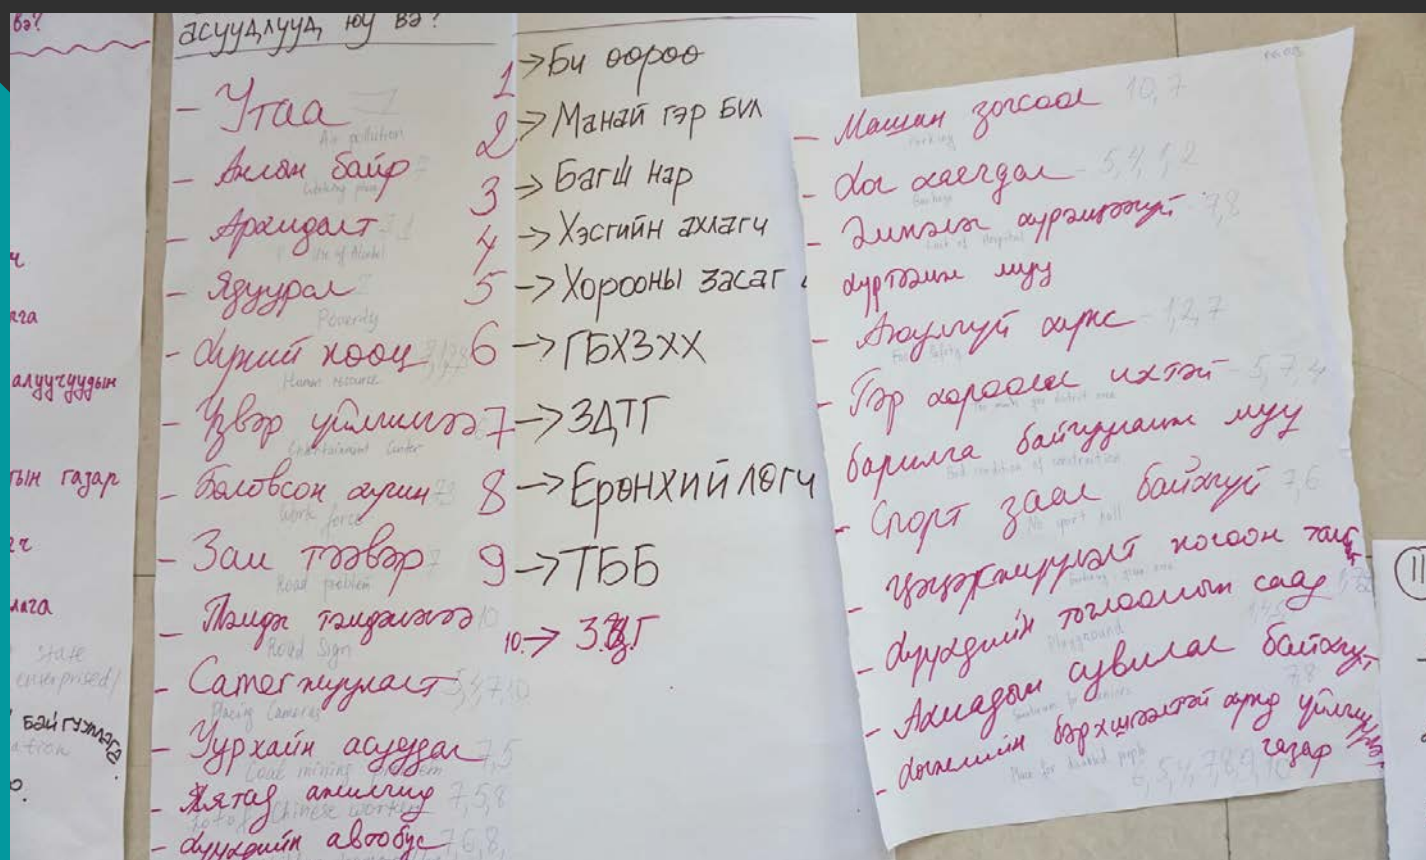 вэ?
ч
лга
алуучуудын
тын газар
гч
лага
state
enterprised/
байгууллага
ation
асуудлууд юу вэ?
- Утаа
Air pollution
- Ажлын байр 7
Working place
- Архидалт
Use of Alcohol
- Ядуурал
Poverty
- Хүний нөөц
Human resource
- Үзвэр үйлчилгээ
Entertainment Center
- Боловсон хүчин 7,8
Work force
- Зам тээвэр 7
Road problem
- Тэмдэг тэмдэглэгээ 10
Road Sign
- Самегжуулалт 5,4,7,10
Placing Cameras
- Уурхайн асуудал 7,5
Coal mining problem
- Хятад ажилчид 7,5,8
Lot of Chinese workers
- Хүүхдийн автобус 7,6,8,
1 -> Би өөрөө
2 -> Манай гэр бүл
3 -> Багш нар
4 -> Хэсгийн ахлагч
5 -> Хорооны засаг
6 -> ГБХЗХХ
7 -> ЗДТГ
8 -> Ерөнхийлөгч
9 -> ТББ
10. -> ЗЦГ
- Машин зогсоол 10,7
Parking
- Хог хаягдал - 5,4,1,2
Garbage
- Эмнэлэг хүрэлцээгүй - 7,8
Lack of Hospital
хүртээмж муу
- Аюулгүй хүнс - 1,2,7
Food Safety
- Гэр хороолол ихтэй - 5,7,4
Too much ger district area
барилга байгууламж муу
Bad condition of construction
- Спорт заал байхгүй 7,6
No sport hall
- Цэцэрлэгжүүлэлт ногоон
Gardening, green area
- Хүүхдийн тоглоомын саад
Playground
- Ахмадын сувилал байхгүй
7,8
- Хөгжлийн бэрхшээлтэй хүнд үйлчлүүлэх
газар
Place for disabled people
6,5,4,7,8,9,10
11